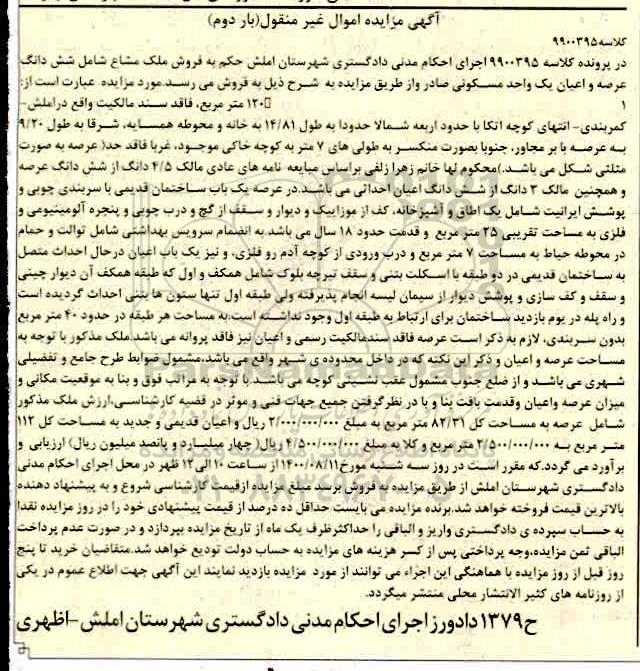 آگهی مزایده اموال غیر منقول(بار دوم)
کلاسه۹۹۰۰۳۹۵
در پرونده کلاسه ۹۹۰۰۳۹۵ اجرای احکام مدنی دادگستری شهرستان املش حکم به فروش ملک مشاع شامل شش دانگ
عرصه و اعیان یک واحد مسکونی صادر واز طریق مزایده به شرح ذیل به فروش می رسد.مورد مزایده عبارت است از:
۱ ۱۲۰ متر مربع، فاقد سند مالکیت واقع دراملش-
کمربندی- انتهای کوچه اتکا با حدود اربعه شمالا حدودا به طول ۱۴/۸۱ به خانه و محوطه همسایه، شرقا به طول ۹/۲۰
به عرصه با بر مجاور، جنوبا بصورت منکسر به طولی های ۷ متر به کوچه خاکی موجود، غربا فاقد حد( عرصه به صورت
مثلثی شکل می باشد.)محکوم لها خانم زهرا زلفی براساس مبایعه نامه های عادی مالک ۴/۵ دانگ از شش دانگ عرصه
و همچنین مالک ۳ دانگ از شش دانگ اعیان احداثی می باشد.در عرصه یک باب ساختمان قدیمی با سربندی چوبی و
پوشش ایرانیت شامل یک اطاق و آشپزخانه، کف از موزاییک و دیوار و سقف از گچ و درب چوبی و پنجره آلومینیومی و
فلزی به مساحت تقریبی ۲۵ متر مربع و قدمت حدود ۱۸ سال می باشد به انضمام سرویس بهداشتی شامل توالت و حمام
در محوطه حیاط به مساحت ۷ متر مربع و درب ورودی از کوچه آدم رو فلزی، و نیز یک باب اعیان درحال احداث متصل
به ساختمان قدیمی در دو طبقه با اسکلت بتنی و سقف تیرچه بلوک شامل همکف و اول که طبقه همکف آن دیوار چینی
و سقف و کف سازی و پوشش دیوار از سیمان لیسه انجام پذیرفته ولی طبقه اول تنها ستون ها بتنی احداث گردیده است
و راه پله در یوم بازدید ساختمان برای ارتباط به طبقه اول وجود نداشته است.به مساحت هر طبقه در حدود ۴۰ متر مربع
بدون سربندی، لازم به ذکر است عرصه فاقد سندمالکیت رسمی و اعیان نیز فاقد پروانه می باشد.ملک مذکور با توجه به
مساحت عرصه و اعیان و ذکر این نکته که در داخل محدوده ی شهر واقع می باشد،مشمول ضوابط طرح جامع و تفضیلی
شهری می باشد و از ضلع جنوب مشمول عقب نشینی کوچه می باشد.با توجه به مراتب فوق و بنا به موقعیت مکانی و
میزان عرصه واعیان وقدمت بافت بنا و با در نظرگرفتن جمیع جهات فنی و موثر در قضیه کارشناسی،ارزش ملک مذکور
شامل عرصه به مساحت کل ۸۲/۳۱ متر مربع به مبلغ ۲/۰۰۰/۰۰۰/۰۰۰ ریال و اعیان قدیمی و جدید به مساحت کل ۱۱۲
متر مربع به ۲/۵۰۰/۰۰۰/۰۰۰ متر مربع و کلا به مبلغ ۴/۵۰۰/۰۰۰/۰۰۰ ریال( چهار میلیارد و پانصد میلیون ریال) ارزیابی و
برآورد می گردد.که مقرر است در روز سه شنبه مورخ۱۴۰۰/۰۸/۱۱ از ساعت ۱۰ الی۱۲ ظهر در محل اجرای احکام مدنی
دادگستری شهرستان املش از طریق مزایده به فروش برسد مبلغ مزایده ازقیمت کارشناسی شروع و به پیشنهاد دهنده
بالاترین قیمت فروخته خواهد شد.برنده مزایده می بایست حداقل ده درصد از قیمت پیشنهادی خود را در روز مزایده نقدا
به حساب سپرده ی دادگستری واریز و الباقی را حداکثرظرف یک ماه از تاریخ مزایده بپردازد و در صورت عدم پرداخت
الباقی ثمن مزایده،وجه پرداختی پس از کسر هزینه های مزایده به حساب دولت تودیع خواهد شد.متقاضیان خرید تا پنج
روز قبل از روز مزایده با هماهنگی این اجراء می توانند از مورد مزایده بازدید نمایند این آگهی جهت اطلاع عموم در یکی
از روزنامه های کثیر الانتشار محلی منتشر میگردد.
ح۱۳۷۹ دادورز اجرای احکام مدنی دادگستری شهرستان املش-اظهری